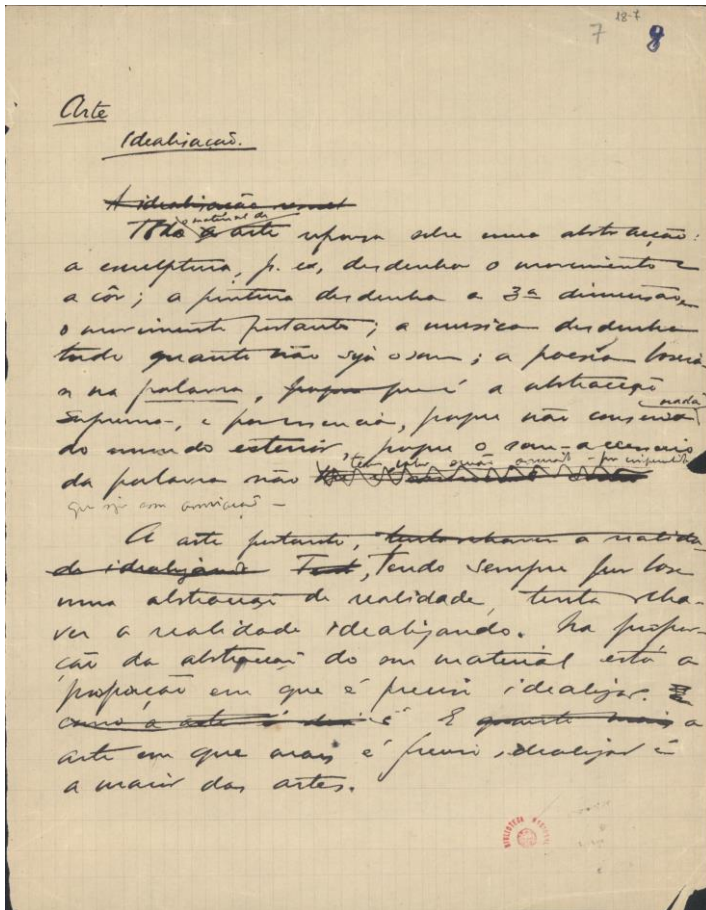 18-7
7 8
Arte
Idealisação.
A idealisação
o material da
Toda a arte repousa sobre uma abstracção:
a esculptura, p. ex., desdenha o movimento e
a côr; a pintura desdenha a 3ª dimensão e
o movimento portanto; a musica desdenha
tudo quanto não seja o som; a poesia baseia-
se na palavra, que é a abstracção
suprema, e por essencia, porque não conserva nada
do mundo exterior, porque o som — accessorio
da palavra não tem valor senão associado — por
que seja essa associação —
A arte portanto, tenta rehaver a realida-
de idealizando Tend, Tendo sempre por base
uma abstracção da realidade, tenta reha-
ver a realidade idealizando. Na propor-
ção da abstracção do seu material está a
proporção em que é preciso idealizar. E
como a arte é E quanto mais a
arte em que mais é preciso idealizar é
a maior das artes.
BIBLIOTECA NACIONAL